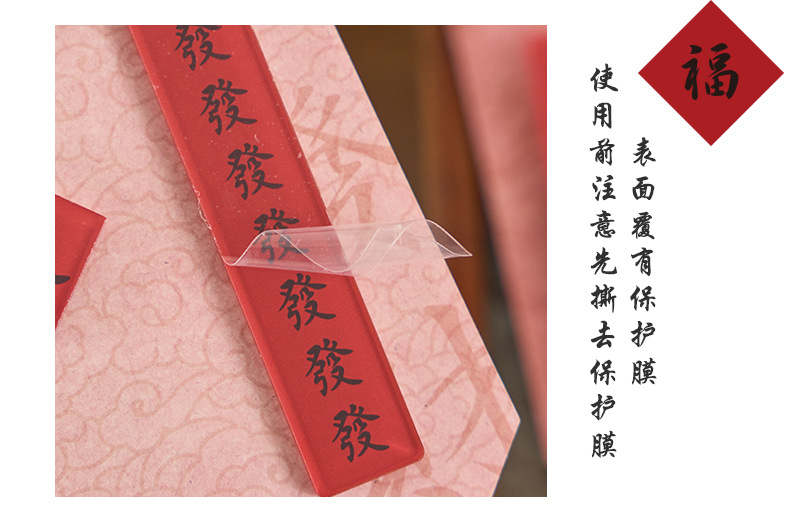 福
表面覆有保护膜
使用前注意先撕去保护膜
發
發
發
發
發
發
發